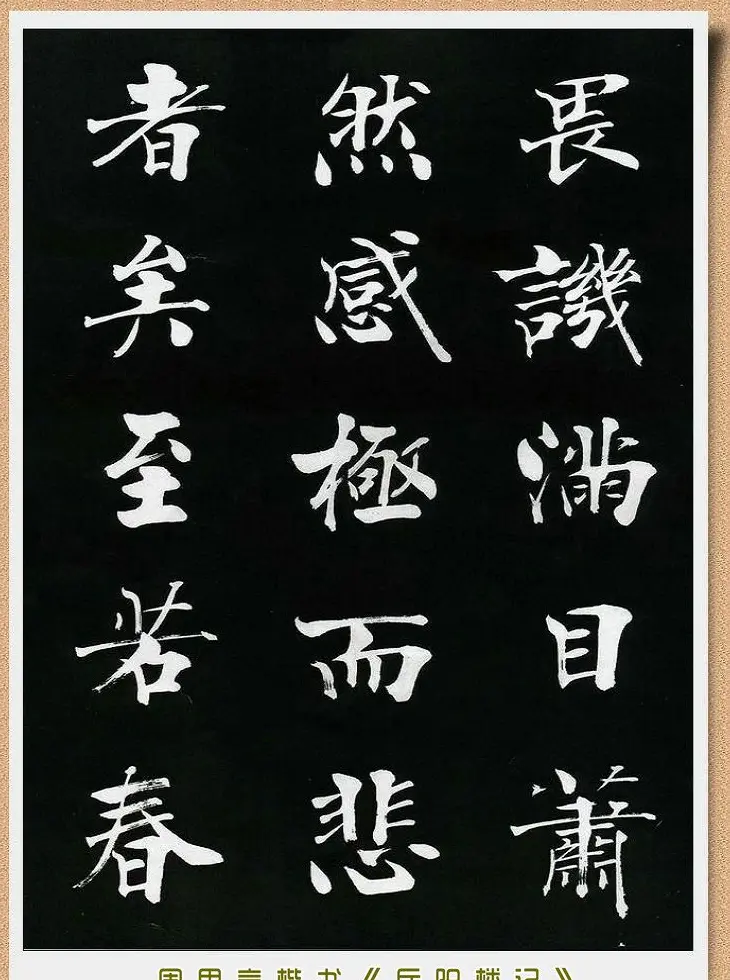 畏譏滿目蕭
然感極而悲
者矣至若春